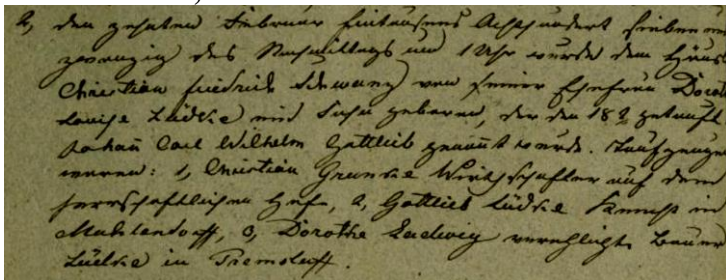 2, den zehnten Februar Eintausend Achthundert sieben und
zwanzig des Nachmittags um 1 Uhr wurde dem Häusl
Christian Friedrich Schwanz von seiner Ehefrau Doroth
Louise Lüdke ein Sohn geboren, der den 18t getauft
Johan Carl Wilhelm Gottlieb genannt wurde. Taufzeugen
waren: 1, Christian Granske Wirthschafter auf dem
herrschaftlichen Hofe, 2, Gottlieb Lüdke Knecht in
Mahlendorff, 3, Dorothe Ludwig verehlichte Bauer
Lüdke in Tremsdorff.